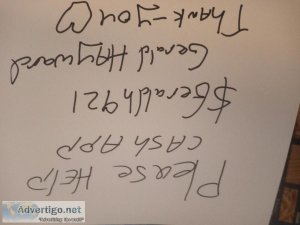 Please HELP
CASH APP
$Geraldh921
Gerald Hayward
Thank-you
Advertigo.net